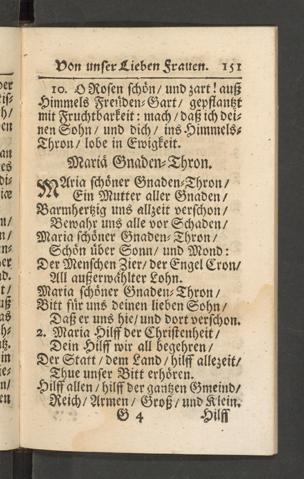 Von unser Lieben Frauen. 151
10. O Rosen schön / und zart! auß
Himmels Freuden-Gart / gepflantzt
mit Fruchtbarkeit: mach / daß ich dei-
nen Sohn / und dich / ins Himmels-
Thron / lobe in Ewigkeit.
Mariä Gnaden-Thron.
MAria schöner Gnaden-Thron /
Ein Mutter aller Gnaden /
Barmhertzig uns allzeit verschon /
Bewahr uns alle vor Schaden /
Maria schöner Gnaden-Thron /
Schön über Sonn / und Mond:
Der Menschen Zier / der Engel Cron /
All außerwählter Lohn.
Maria schöner Gnaden-Thron /
Bitt für uns deinen lieben Sohn /
Daß er uns hie / und dort verschon.
2. Maria Hilff der Christenheit /
Dein Hilff wir all begehren /
Der Statt / dem Land / hilff allezeit /
Thue unser Bitt erhören.
Hilff allen / hilff der gantzen Gmeind /
Reich / Armen / Groß / und Klein.
G 4 Hilff